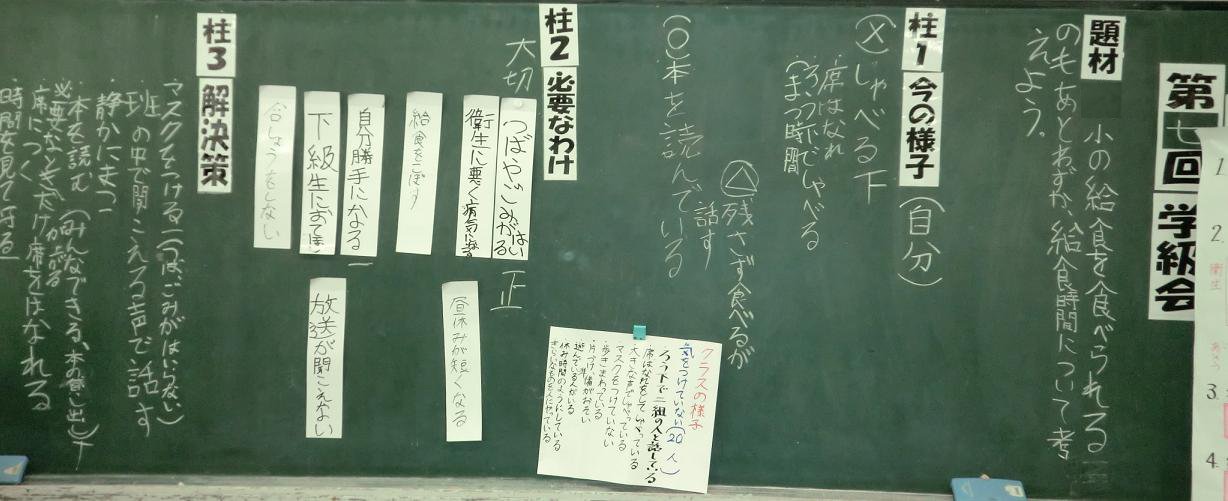 第七回 学級会
題材
小の給食を食べられる
のもあとわずか、給食時間について考
えよう。
柱1 今の様子（自分）
（×）しゃべる 下
席はなれ
ろう下でしゃべる
（まつ時間
△残さず食べるが
話す
（○）本を読んでいる
柱2 必要なわけ
大切
正
つばやごみがはいる
衛生に悪く病気になる
給食をこぼす
自分勝手になる
下級生におてほん
合しょうをしない
昼休みが短くなる
放送が聞こえない
クラスの様子
気をつけていない（20人）
ろう下で二組の人と話している
席はなれをしてしゃべっている
大きな声でしゃべっている
マスクをつけていない
歩きまわっている
片づけ、準備がおそい
遊んでいる人がいる
休み時間のようにしている
きらいなものを人にやっている
柱3 解決策
マスクをつける（つば、ごみがはいらない）
班の中で聞こえる声で話す
静かにまつ
本を読む（みんなできる、本の貸し出し）
必要なときだけ席をはなれる
席につく
時間を見て守る
1
2
衛生
3.
4.